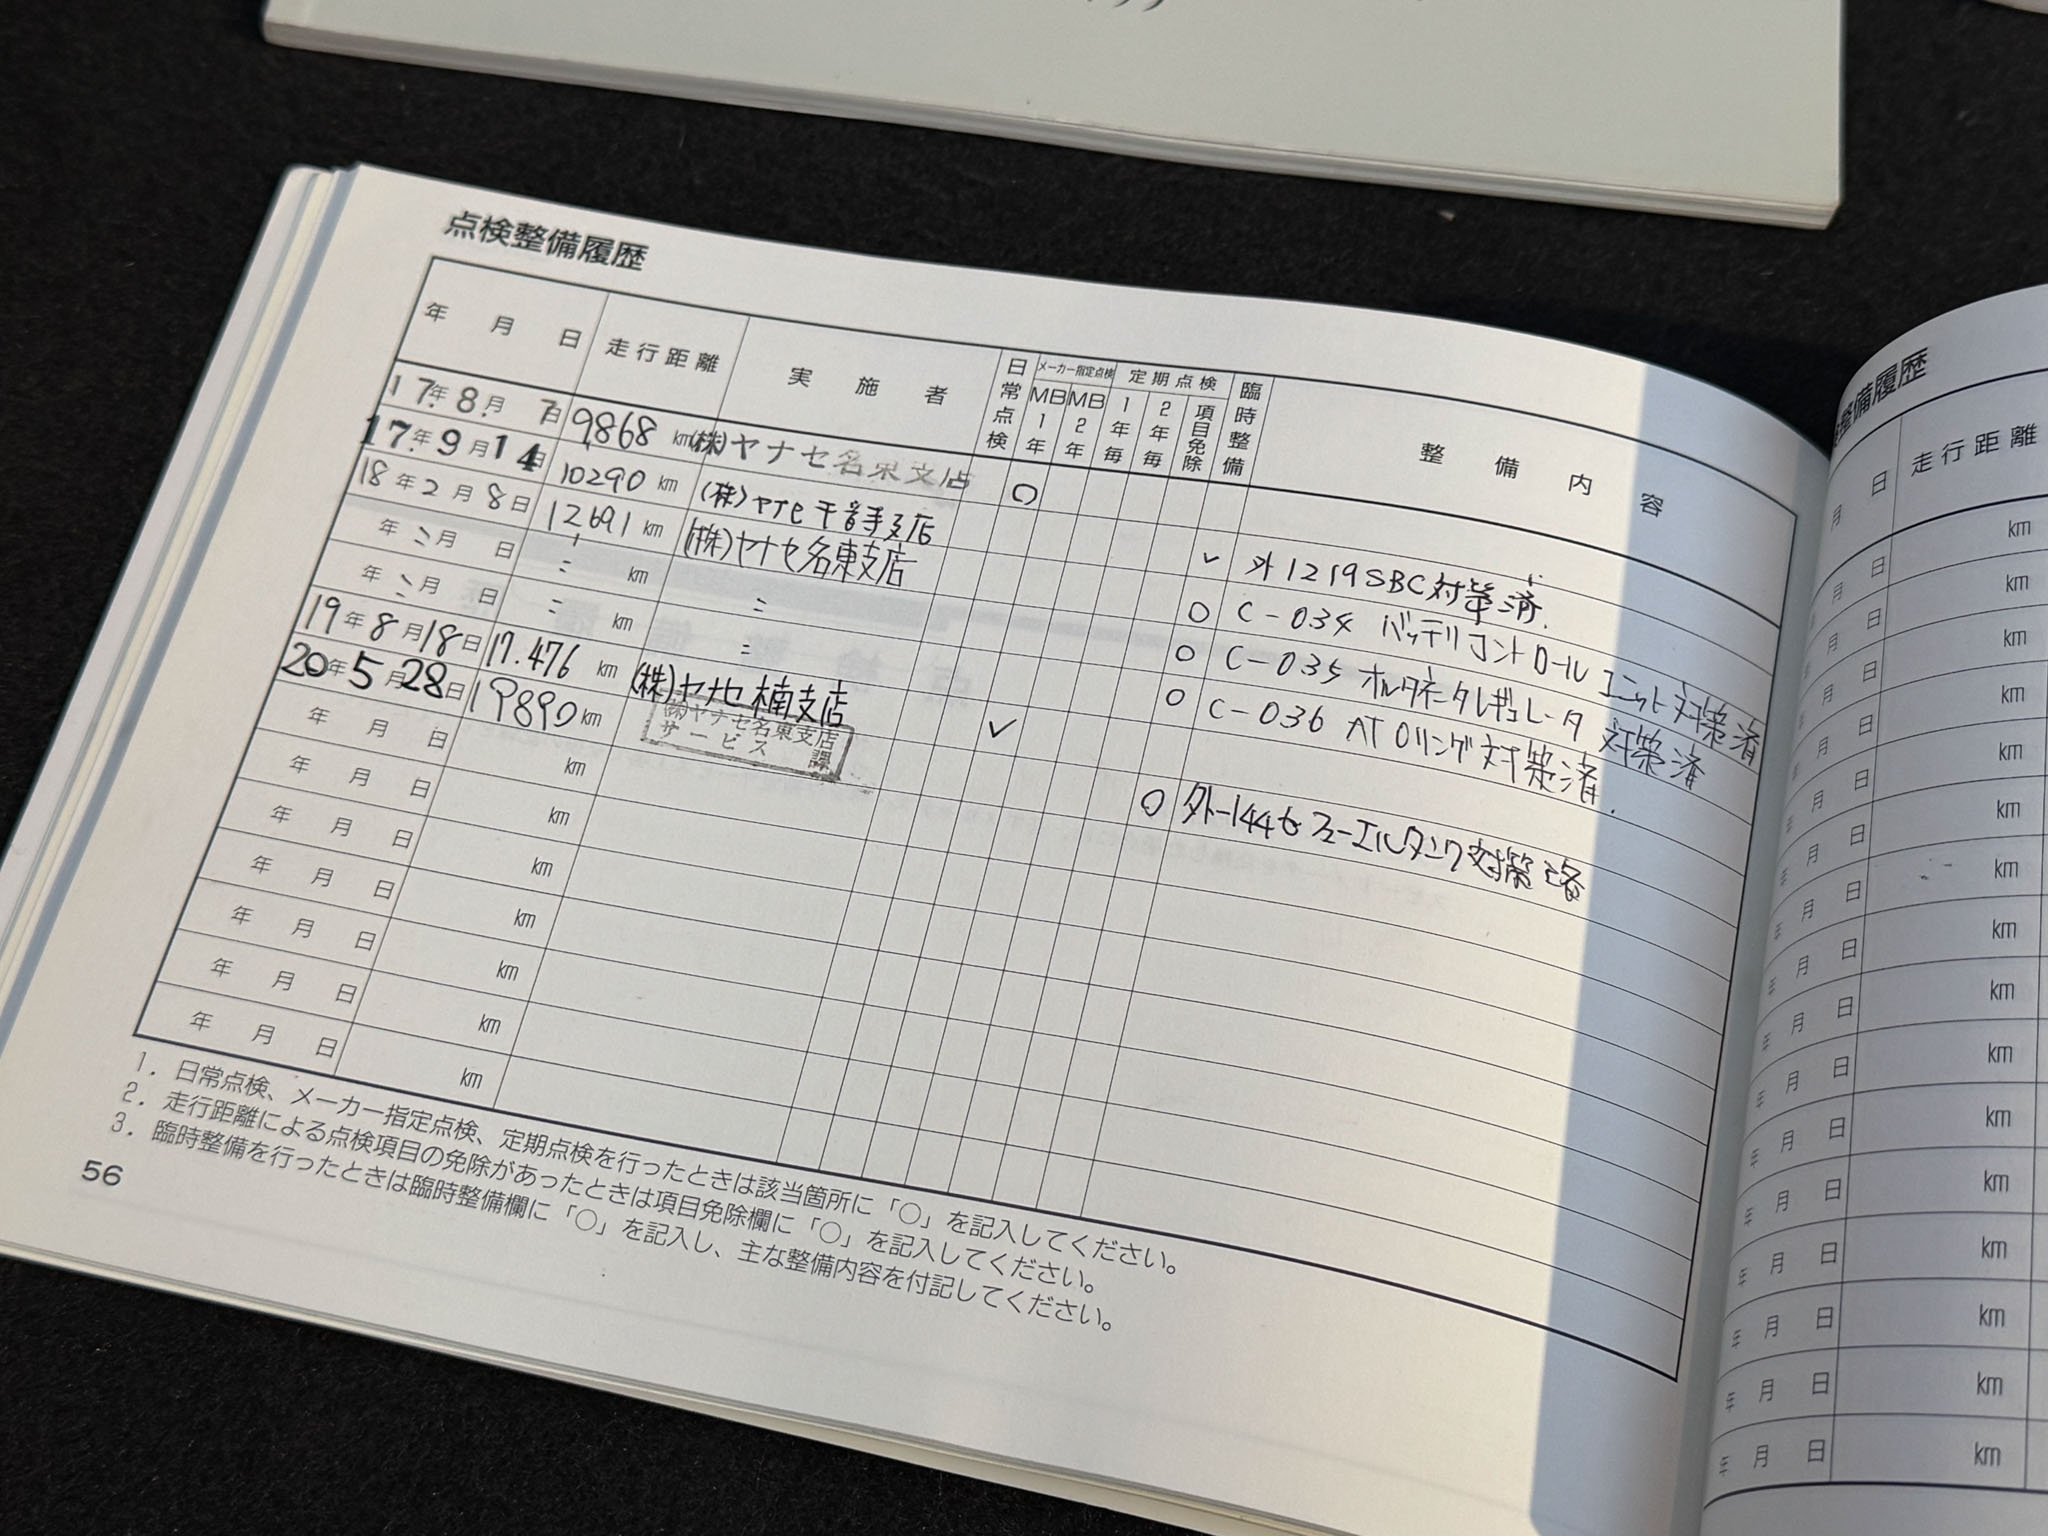 点検整備履歴
年 月 日 走行距離 実施者 日常点検 メーカー指定点検 MB1年 MB2年 定期点検 1年毎 2年毎 項目免除 臨時整備 整備内容
17年8月7日 9868km (株)ヤナセ名東支店 ○
17年9月14日 10290km (株)ヤナセ千音寺支店 ✓ 外1219SBC対策済
18年2月8日 12691km (株)ヤナセ名東支店 ○ C-034 バッテリコントロールユニット対策済
年〃月 日 〃 km 〃 ○ C-035 オルタネータレギュレータ対策済
年〃月 日 〃 km 〃 ○ C-036 ATOリング対策済.
19年8月18日 17.476km (株)ヤナセ楠支店 ✓
20年5月28日 19890km (株)ヤナセ名東支店 サービス課 ○ 外-144 フューエルタンク対策済
年 月 日 km
年 月 日 km
年 月 日 km
年 月 日 km
年 月 日 km
年 月 日 km
年 月 日 km
1. 日常点検、メーカー指定点検、定期点検を行ったときは該当箇所に「○」を記入してください。
2. 走行距離による点検項目の免除があったときは項目免除欄に「○」を記入してください。
3. 臨時整備を行ったときは臨時整備欄に「○」を記入し、主な整備内容を付記してください。
56
備履歴
月 日 走行距離
年 月 日 km
年 月 日 km
年 月 日 km
年 月 日 km
年 月 日 km
年 月 日 km
年 月 日 km
年 月 日 km
年 月 日 km
年 月 日 km
年 月 日 km
年 月 日 km
年 月 日 km
年 月 日 km
年 月 日 km
年 月 日 km